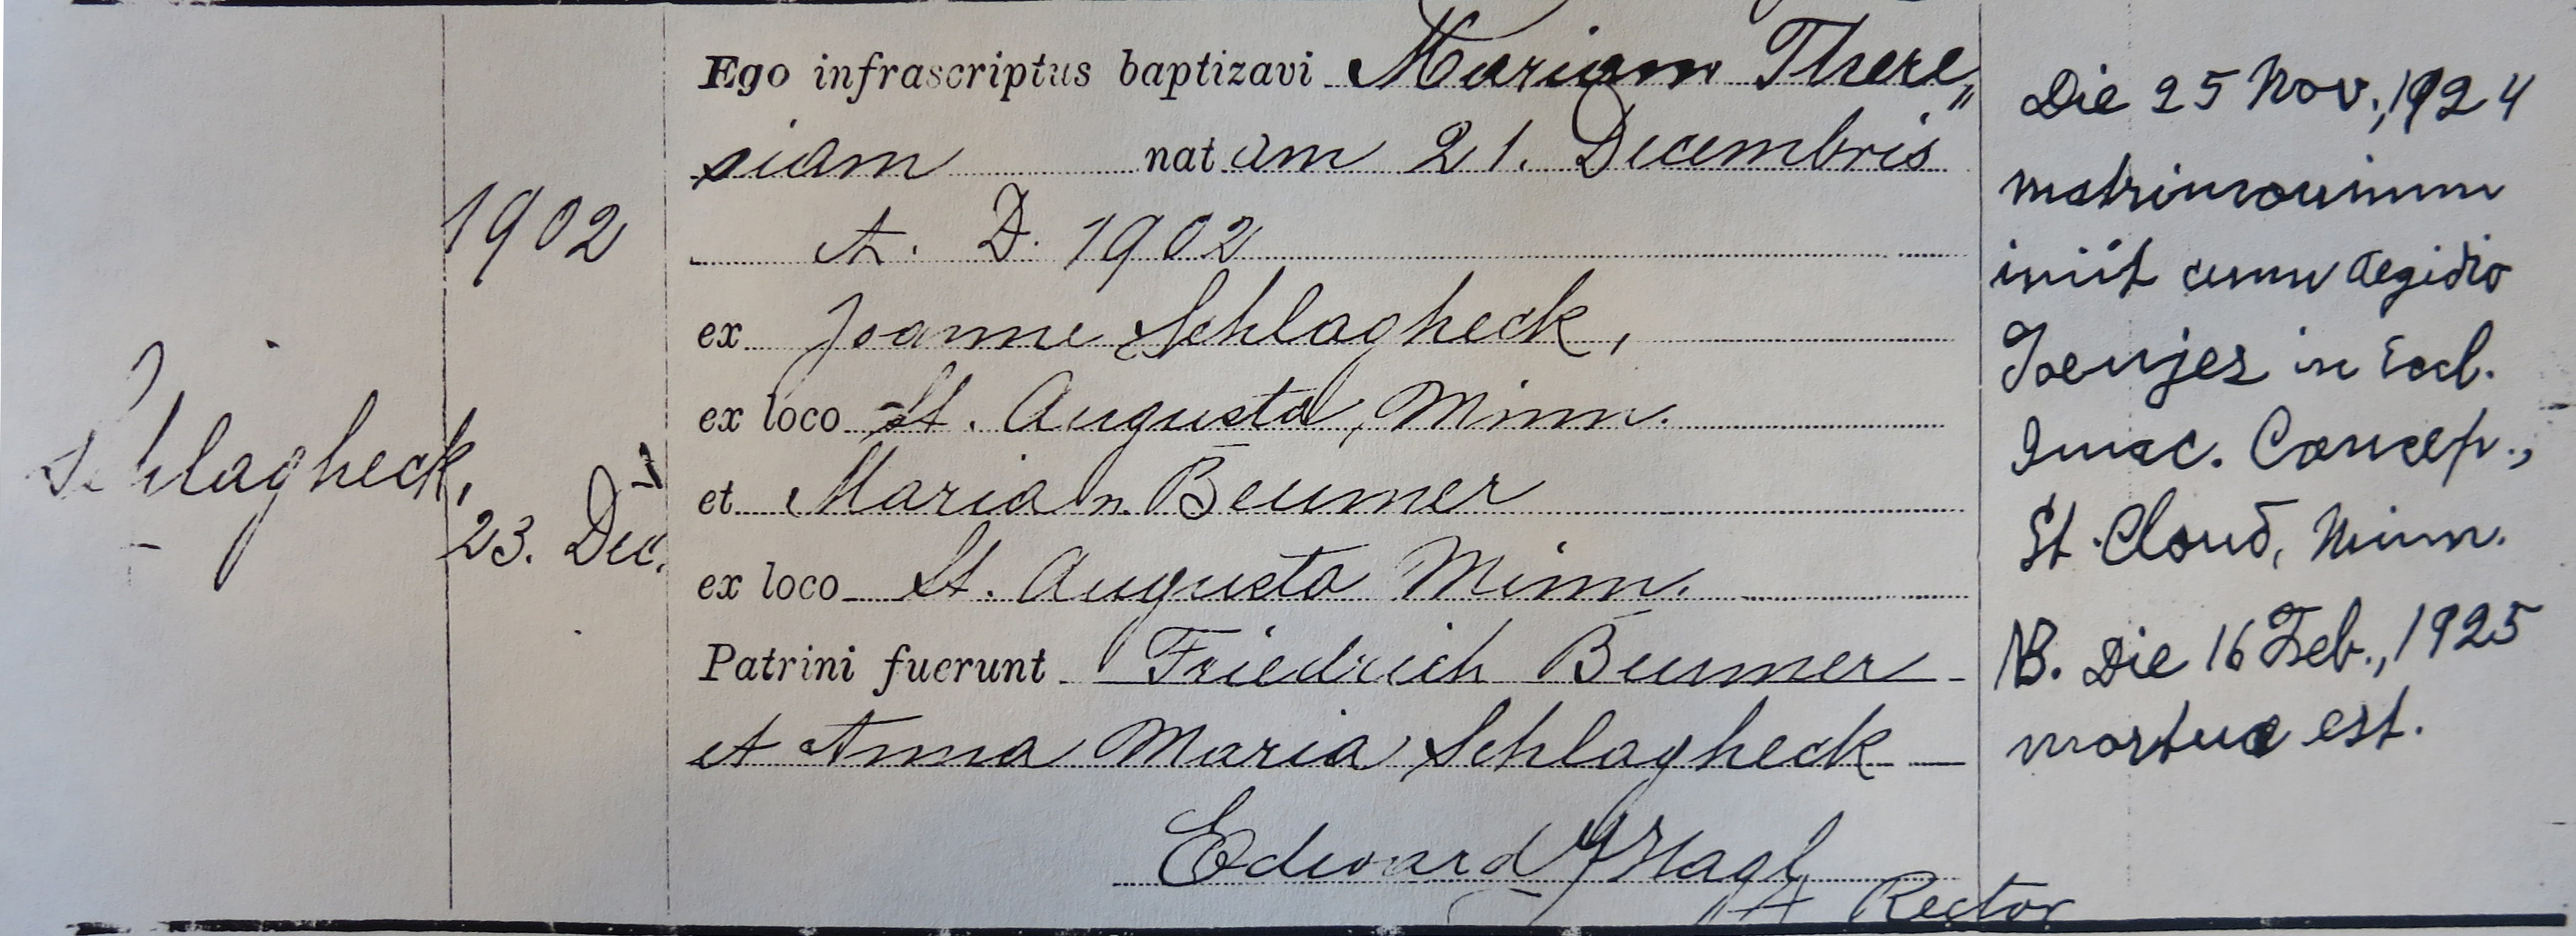 Schlagheck,
1902
23. Dec.
Ego infrascriptus baptizavi Mariam There„
siam nat am 21. Decembris
A. D. 1902
ex Joanne Schlagheck,
ex loco St. Augusta, Minn.
et Maria n. Beumer
ex loco St. Augusta Minn.
Patrini fuerunt Friedrich Beumer
et Anna Maria Schlagheck
Edward Nagl
Rector
Die 25 Nov., 1924
matrimonium
iniit cum Aegidio
Toenjes in Eccl.
Imac. Concep.,
St. Cloud, Minn.
NB. Die 16 Feb., 1925
mortua est.